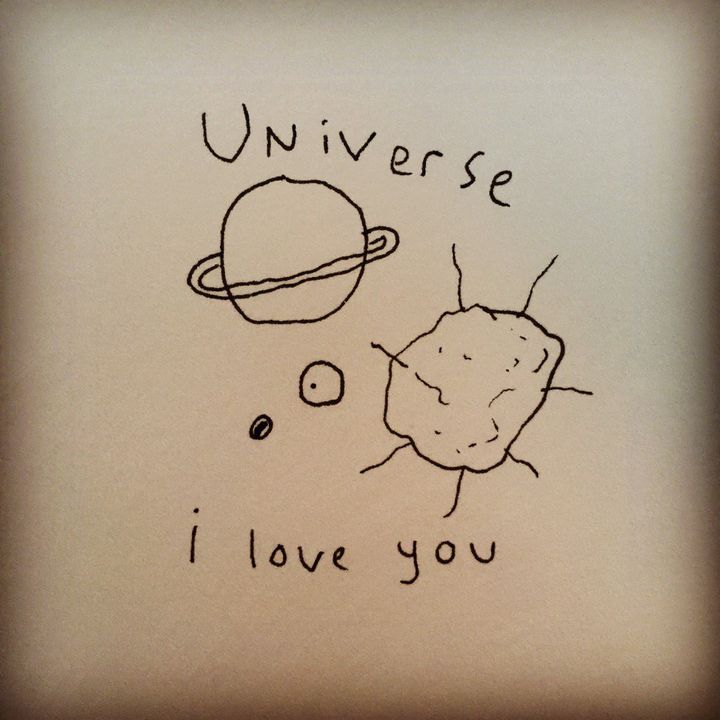 UNiVerse
i love you